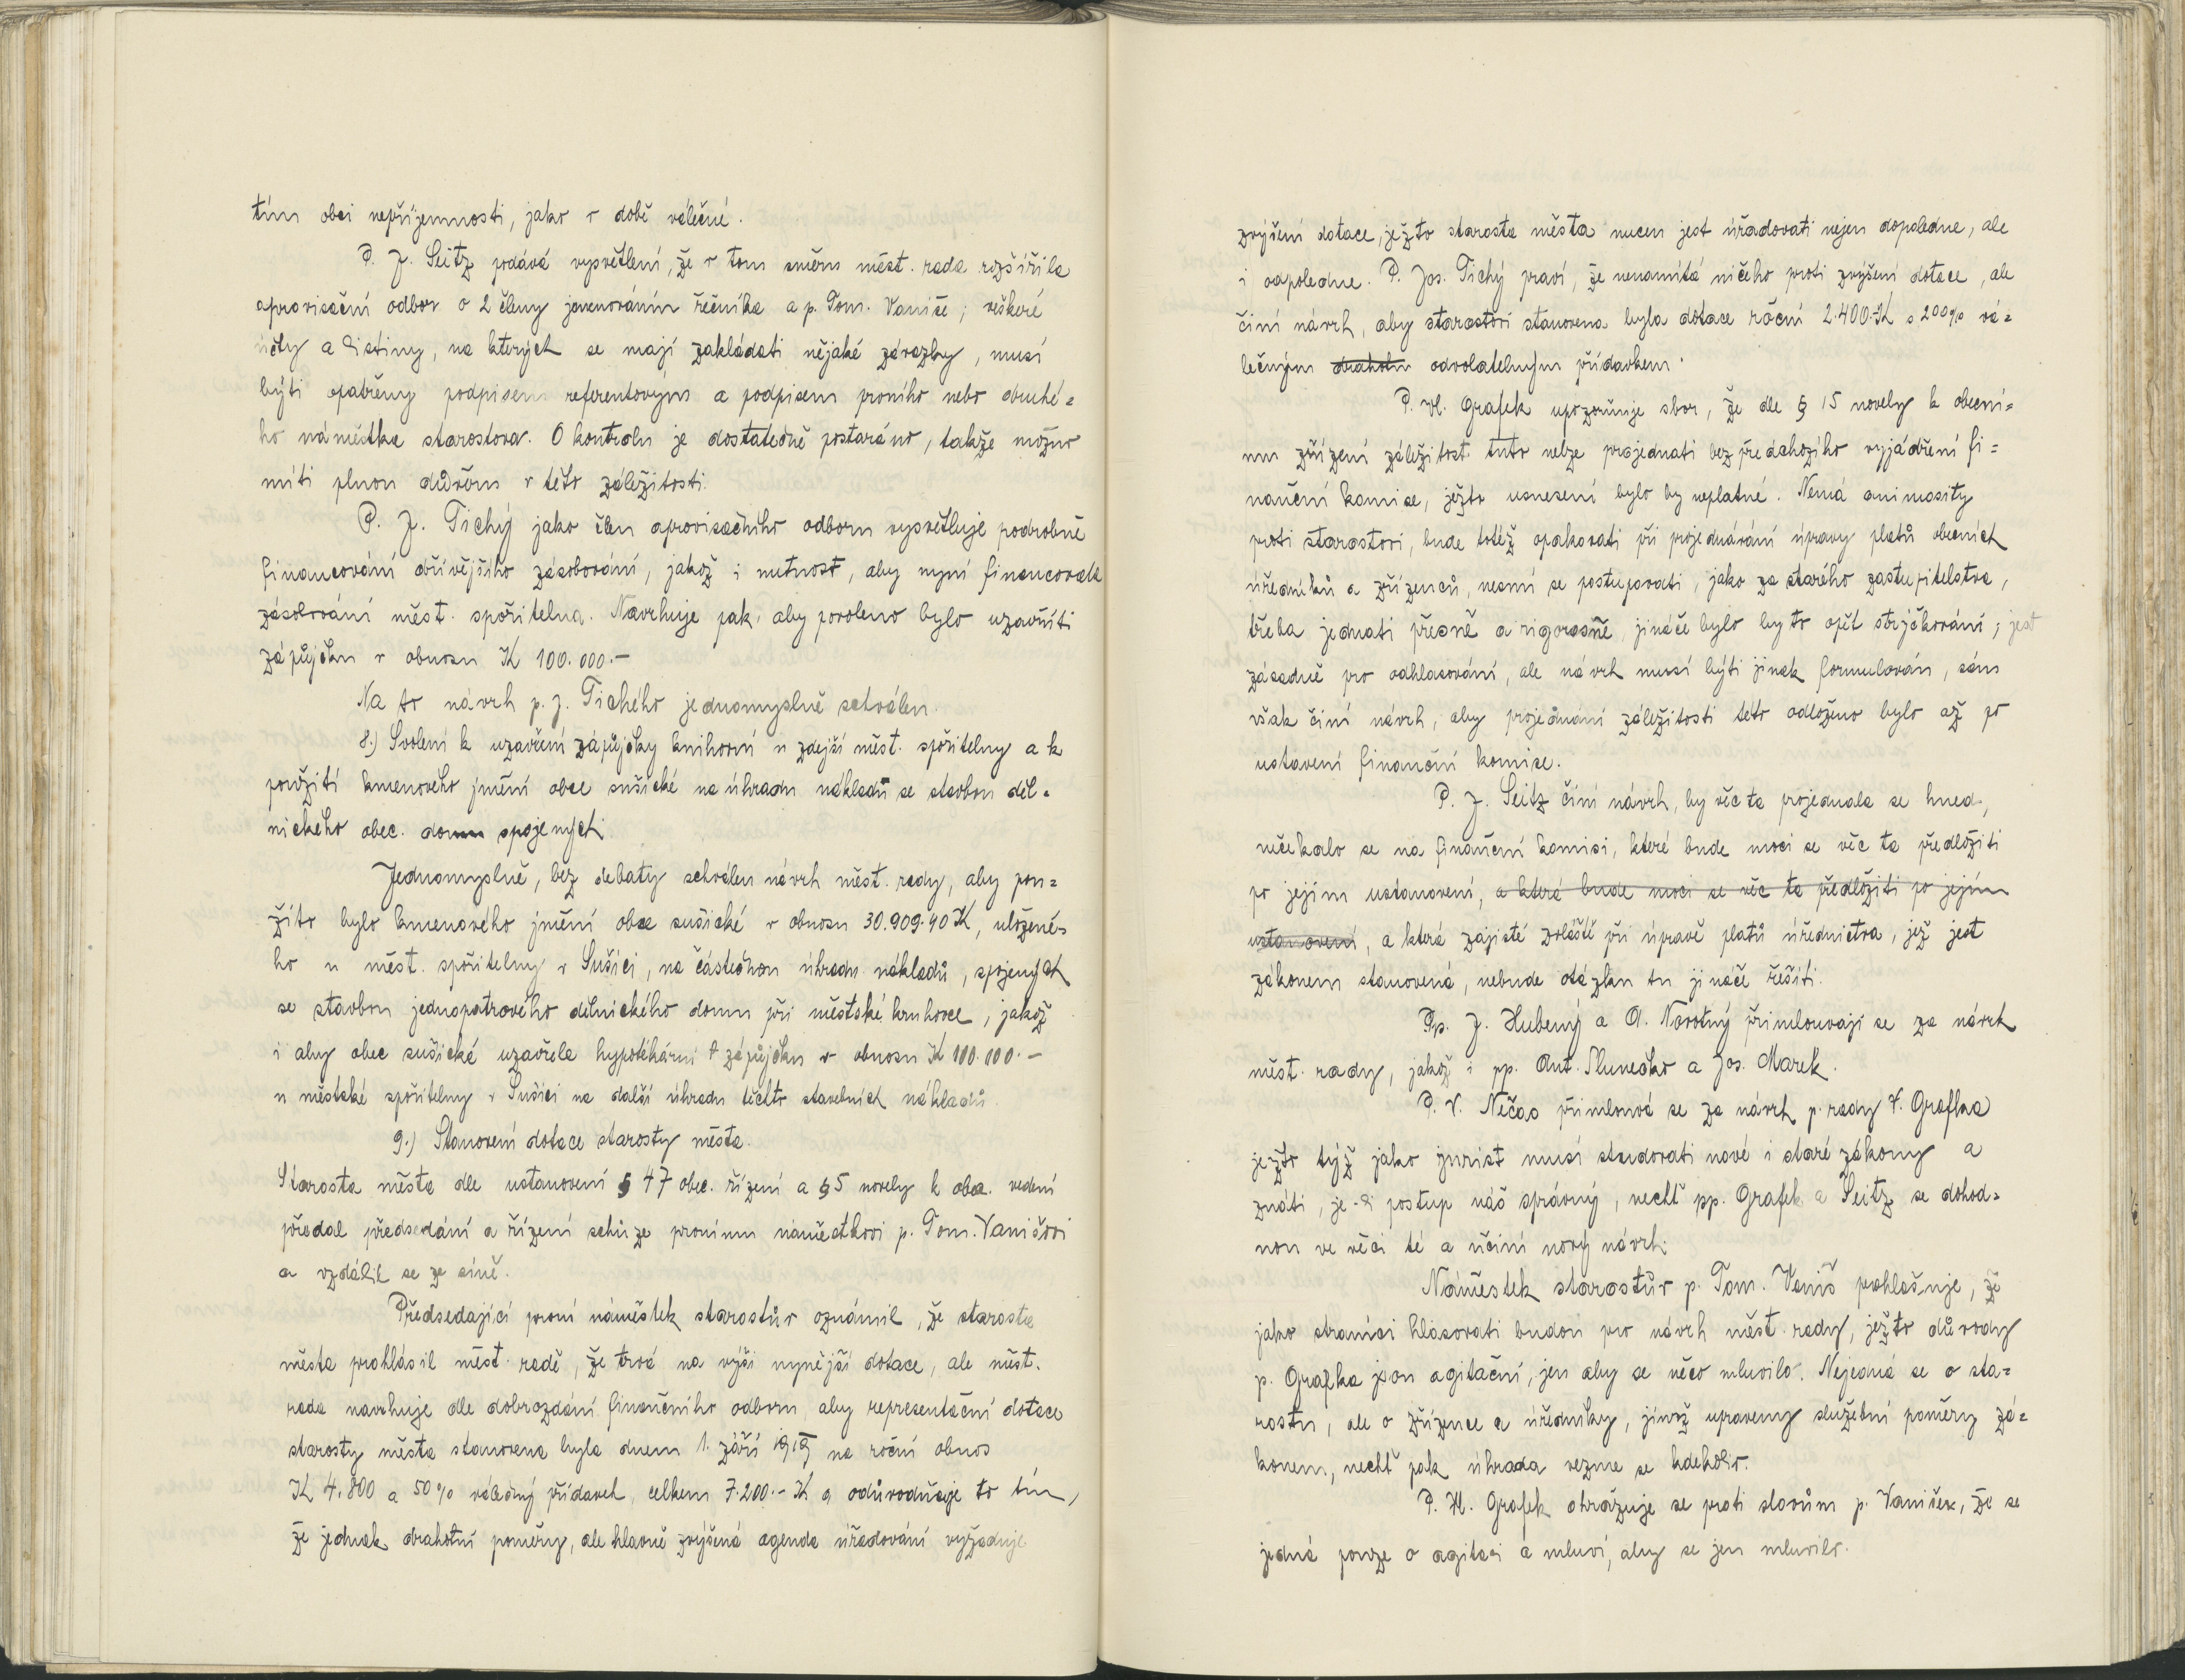 tím obci nepříjemnosti, jako v době válečné.
P. J. Seitz podává vysvětlení, že v tom směru měst. rada rozšířila
aprovisační odbor o 2 členy jmenováním řečníka a p. Tom. Vaniše; veškeré
účty a listiny, na kterých se mají zakládati nějaké závazky, musí
býti opatřeny podpisem referentovým a podpisem prvního nebo druhé=
ho náměstka starostova. O kontrolu je dostatečně postaráno, takže možno
míti plnou důvěru v této záležitosti.
P. J. Tichý jako člen aprovisačního odboru vysvětluje podrobně
financování dřívějšího zásobování, jakož i nutnost, aby nyní financovala
zásobování měst. spořitelna. Navrhuje pak, aby povoleno bylo uzavříti
zápůjčku v obnosu K 100.000.-
Na to návrh p. J. Tichého jednomyslně schválen.
8.) Svolení k uzavření zápůjčky knihovní u zdejší měst. spořitelny a k
použití kmenového jmění obce sušické na úhradu nákladů se stavbou děl=
nického obec. domu spojených.
Jednomyslně, bez debaty schválen návrh měst. rady, aby pou=
žito bylo kmenového jmění obce sušické v obnosu 30.909.40 K, uložené=
ho u měst. spořitelny v Sušici, na částečnou úhradu nákladů, spojených
se stavbou jednopatrového dělnického domu při městské kruhovce, jakož
i aby obec sušická uzavřela hypotékární zápůjčku v obnosu K 100.000.-
u městské spořitelny v Sušici na další úhradu těchto stavebních nákladů.
9.) Stanovení dotace starosty města.
Starosta města dle ustanovení § 47 obec. řízení a § 5 novely k obec. vedení
předal předsedání a řízení schůze prvnímu náměstkovi p. Tom. Vanišovi
a vzdálil se ze síně.
Předsedající první náměstek starostův oznámil, že starosta
města prohlásil měst. radě, že trvá na výši nynější dotace, ale měst.
rada navrhuje dle dobrozdání finančního odboru, aby representační dotace
starosty města stanovena byla dnem 1. září 1919 na roční obnos
K 4.800 a 50% válečný přídavek, celkem 7.200.- K a odůvodňuje to tím,
že jednak drahotní poměry, ale hlavně zvýšená agenda úřadování vyžaduje
zvýšení dotace, ježto starosta města nucen jest úřadovati nejen dopoledne, ale
i odpoledne. P. Jos. Tichý praví, že nenamítá ničeho proti zvýšení dotace, ale
činí návrh, aby starostovi stanovena byla dotace roční 2.400.K s 200% vá=
lečným drahotn odvolatelným přídavkem.
P. Vl. Grafek upozorňuje sbor, že dle § 15 novely k obecní=
mu zřízení záležitost tuto nelze projednati bez předchozího vyjádření fi=
nanční komise, ježto usnesení bylo by neplatné. Nemá animosity
proti starostovi, bude totéž opakovati při projednávání úpravy platů obecních
úředníků a zřízenců, nesmí se postupovati, jako za starého zastupitelstva,
třeba jednati přesně a rigorosně, jináče bylo by to opět strýčkování; jest
zásadně pro odhlasování, ale návrh musí býti jinak formulován, sám
však činí návrh, aby projednání záležitosti této odloženo bylo až po
ustavení finanční komise.
P. J. Seitz činí návrh, by věc ta projednala se hned,
nečekalo se na finanční komisi, které bude moci se věc ta předložiti
po jejím ustanovení, a která bude moci se věc ta předložiti po jejím
ustanovení, a která zajisté zvláště při úpravě platů úřednictva, jež jest
zákonem stanovená, nebude otázku tu jináče řešiti.
Pp. J. Hubený a A. Novotný přimlouvají se za návrh
měst. rady, jakož i pp. Ant. Slunečko a Jos. Marek.
P. V. Nečas přimlouvá se za návrh p. rady V. Grafka
ježto týž jako jurist musí studovati nové i staré zákony a
znáti, je-li postup náš správný, nechť pp. Grafek a Seitz se dohod=
nou ve věci té a učiní nový návrh.
Náměstek starostův p. Tom. Vaniš prohlašuje, že
jako straníci hlasovati budou pro návrh měst. rady, ježto důvody
p. Grafka jsou agitační, jen aby se něco mluvilo. Nejedná se o sta=
rostu, ale o zřízence a úředníky, jimž upraveny služební poměry zá=
konem, nechť pak úhrada vezme se kdekoliv.
P. Vl. Grafek ohražuje se proti slovům p. Vanišea, že se
jedná pouze o agitaci a mluví, aby se jen mluvilo.